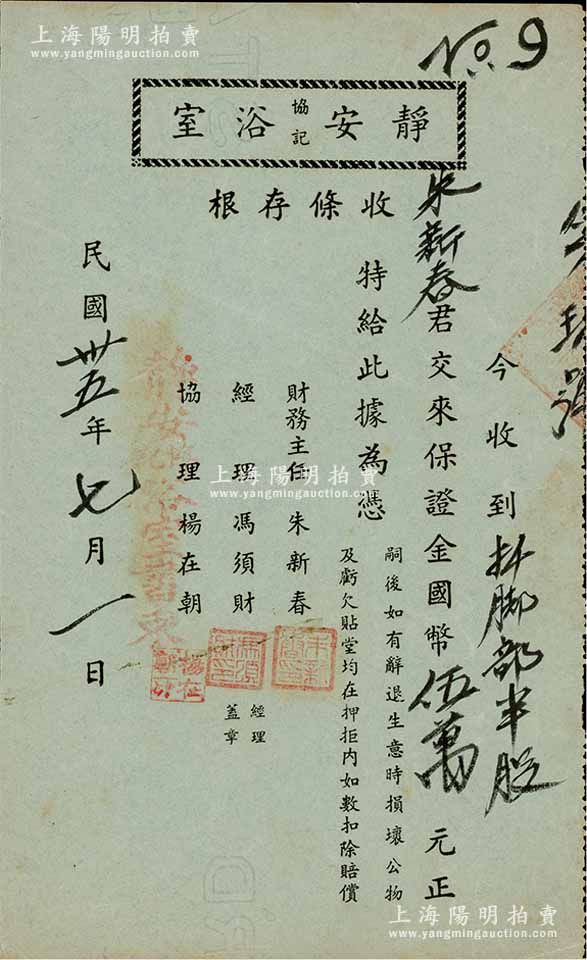 上海陽明拍賣
www.yangmingauction.com
No. 9
靜安協記浴室
收條存根
今收到扦脚部半股
朱新春君交來保證金國幣伍萬元正
特給此據為憑
嗣後如有辭退生意時損壞公物
及虧欠貼堂均在押拒內如數扣除賠償
財務主任 朱新春
經理 馮須財
經理
蓋章
協理 楊在朝
民國卅五年七月一日
上海陽明拍賣
www.yangmingauction.com
上海陽明拍賣
www.yangmingauction.com